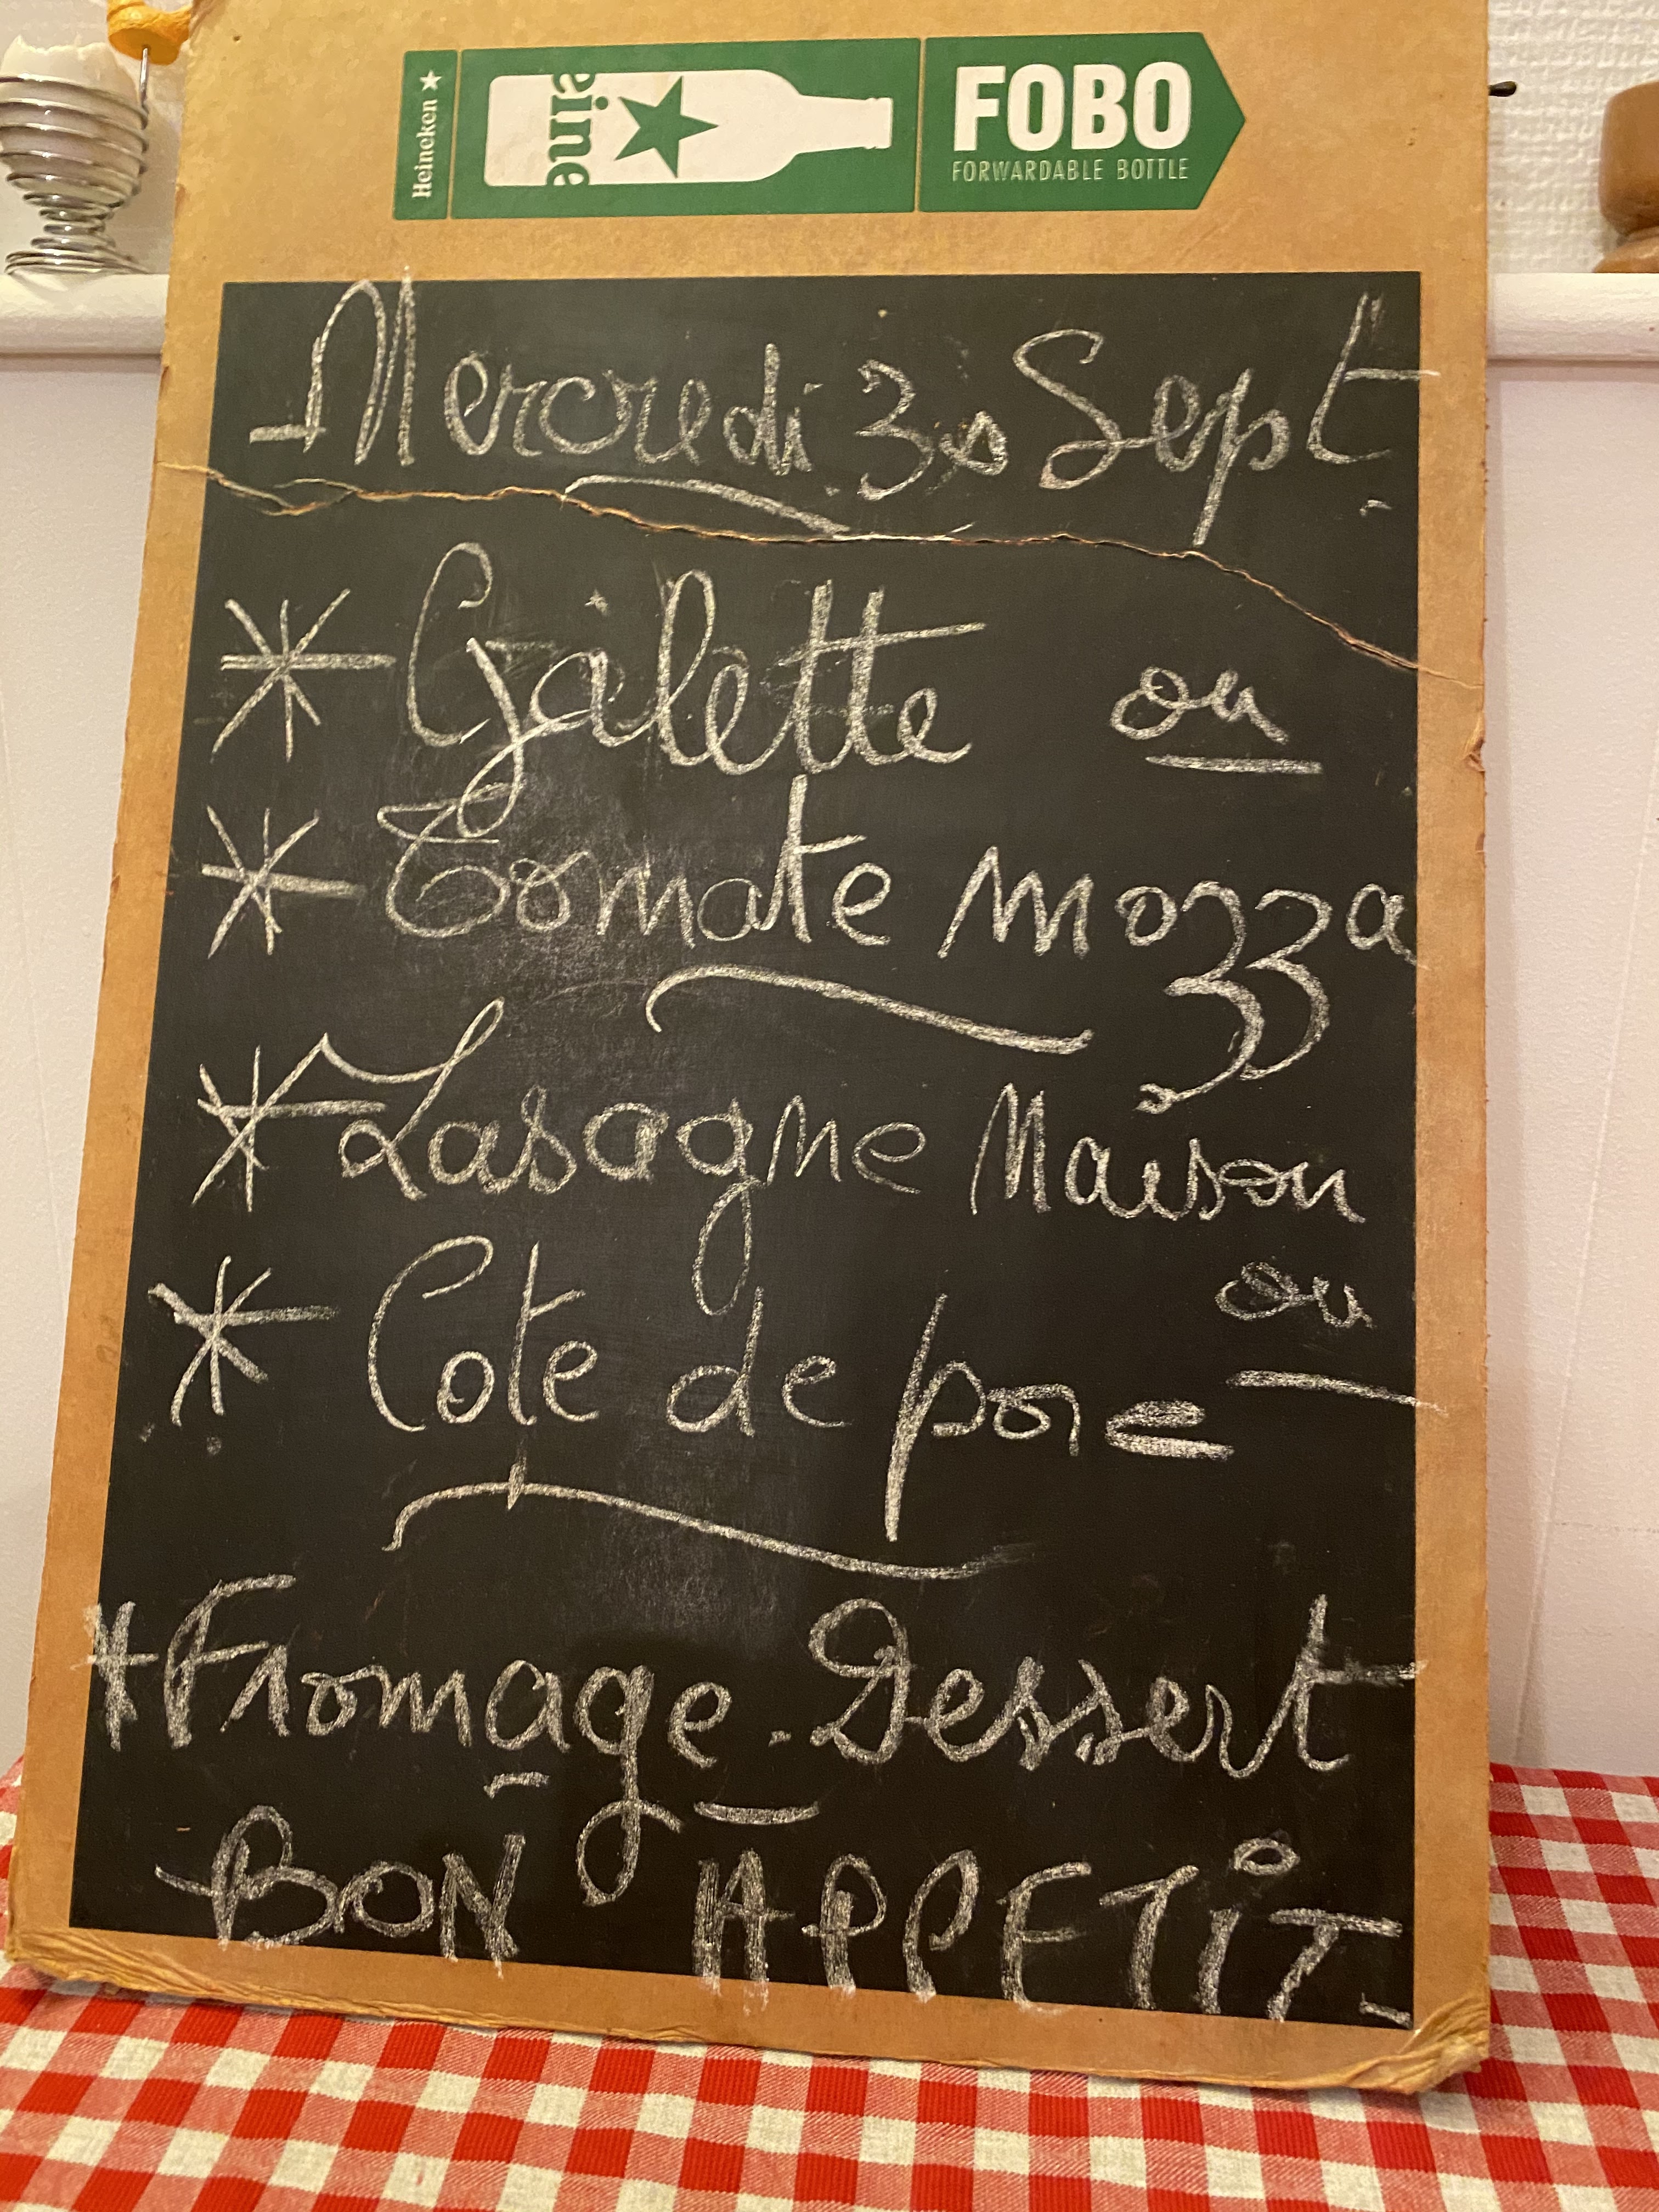 Heineken
eine
FOBO
FORWARDABLE BOTTLE
Mercredi 30 Sept.
* Galette ou
* Tomate mozza
* Lasagne Maison
ou
* Cote de porc
* Fromage. Dessert
BON APPETIT